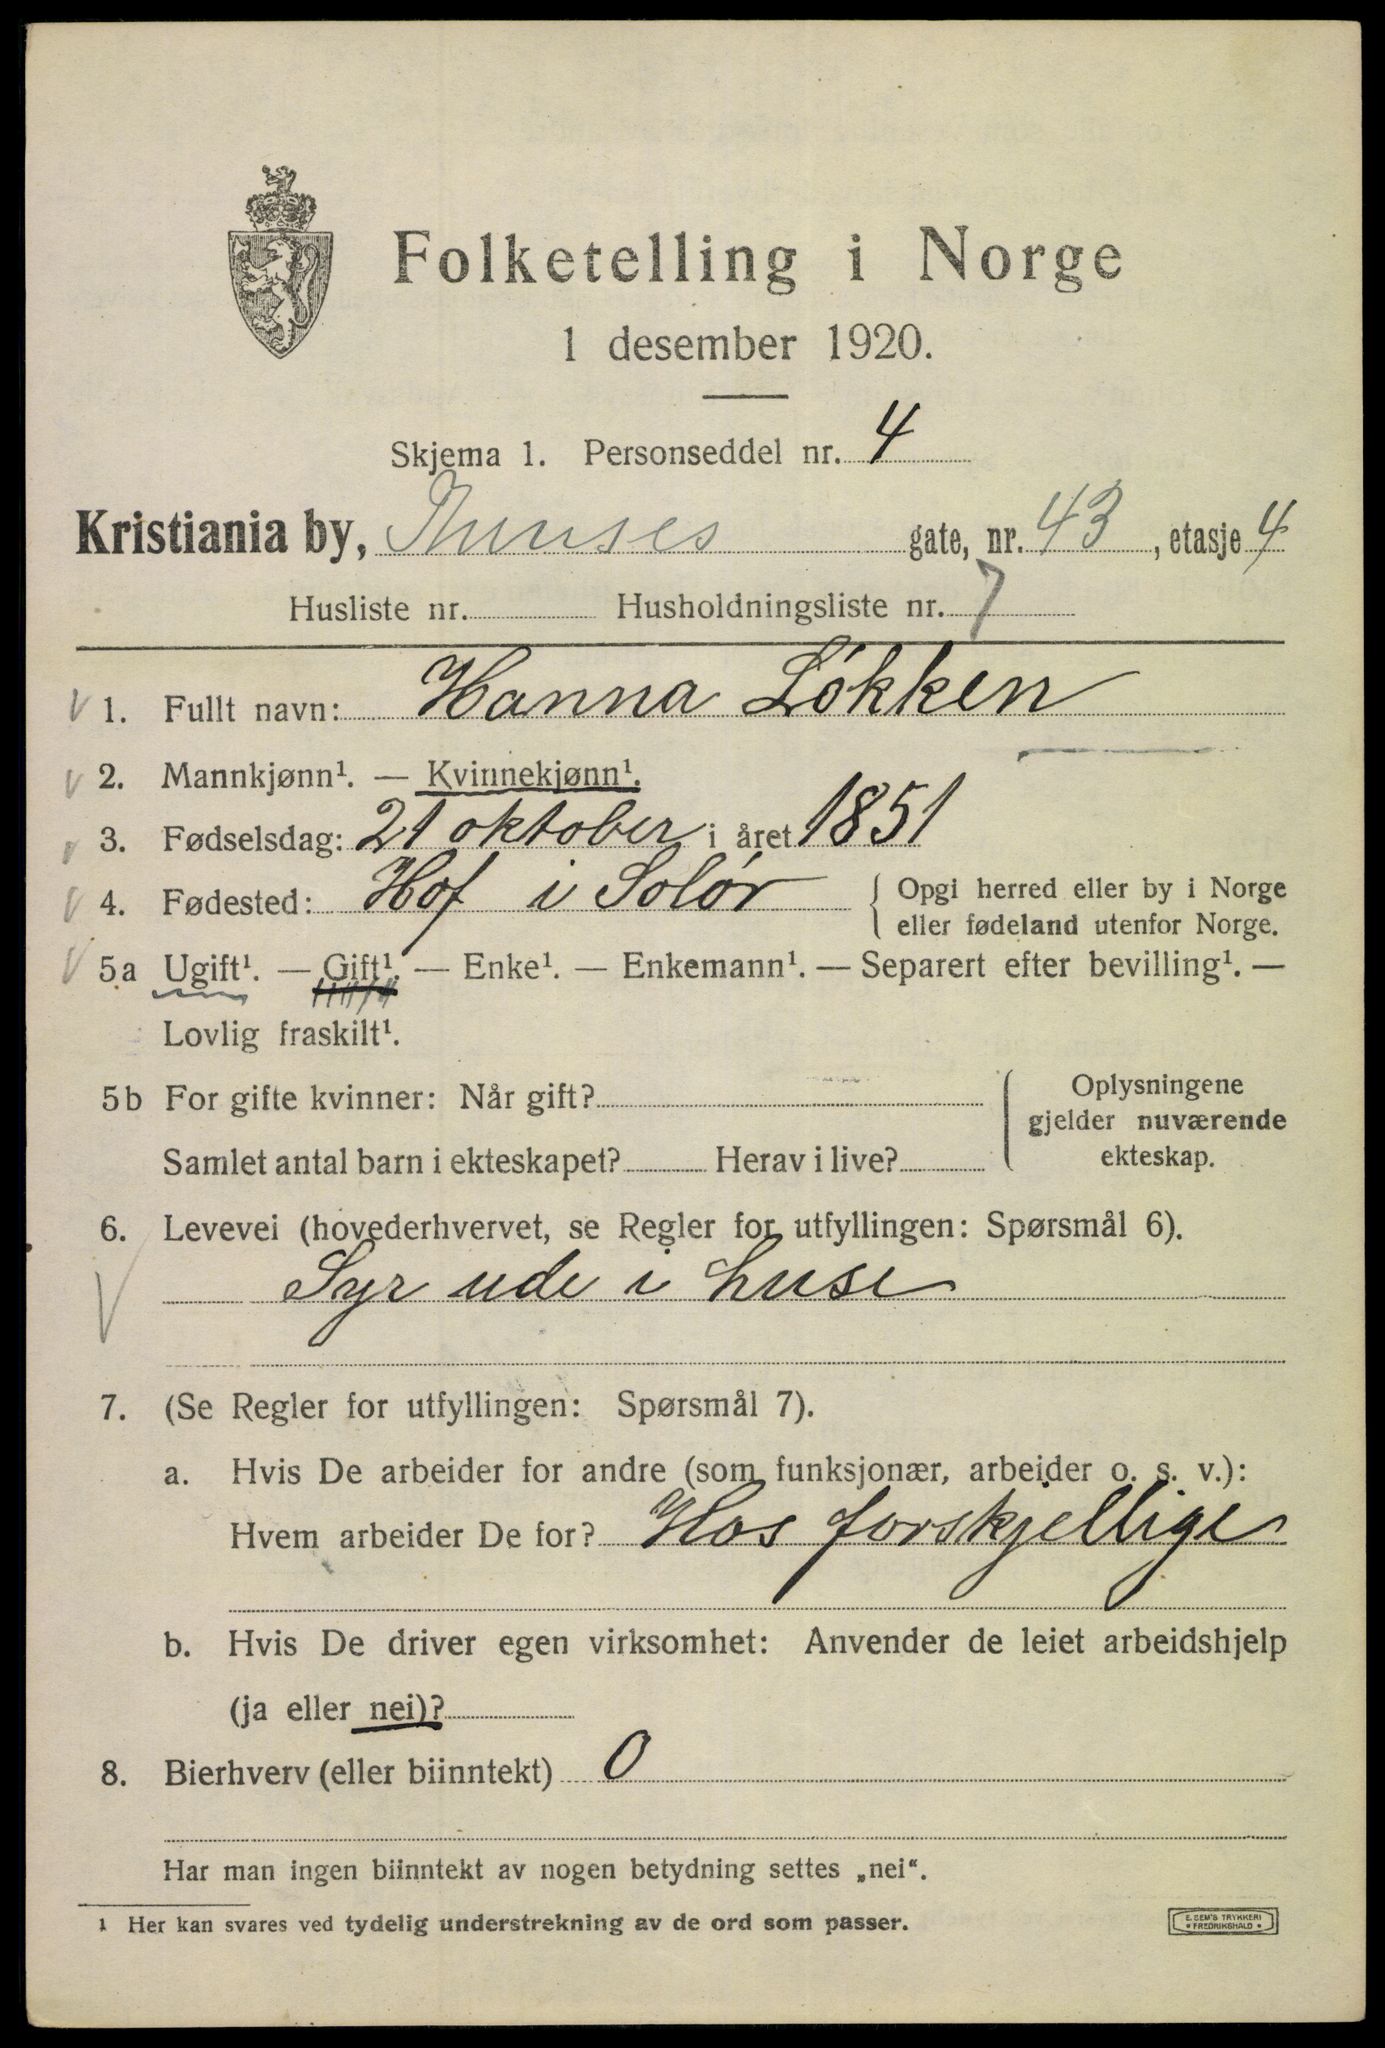 Folketelling i Norge
1 desember 1920.
Skjema 1. Personseddel nr. 4
Kristiania by, Thunses gate, nr. 43, etasje 4
Husliste nr. Husholdningsliste nr. 7
1. Fullt navn: Hanna Løkken
2. Mannkjønn¹. — Kvinnekjønn¹.
3. Fødselsdag: 21 oktober i året 1851
4. Fødested: Hof i Solør { Opgi herred eller by i Norge
eller fødeland utenfor Norge.
5a Ugift¹. — Gift¹. — Enke¹. — Enkemann¹. — Separert efter bevilling¹. —
Lovlig fraskilt¹.
5b For gifte kvinner: Når gift? Oplysningene
gjelder nuværende
Samlet antal barn i ekteskapet? Herav i live? ekteskap.
6. Levevei (hovederhvervet, se Regler for utfyllingen: Spørsmål 6).
Syr ude i huse
7. (Se Regler for utfyllingen: Spørsmål 7).
a. Hvis De arbeider for andre (som funksjonær, arbeider o. s. v.):
Hvem arbeider De for? Hos forskjellige
b. Hvis De driver egen virksomhet: Anvender de leiet arbeidshjelp
(ja eller nei)?
8. Bierhverv (eller biinntekt) 0
Har man ingen biinntekt av nogen betydning settes „nei“.
1 Her kan svares ved tydelig understrekning av de ord som passer.
E. SEM'S TRYKKERI
* FREDRIKSHALD *